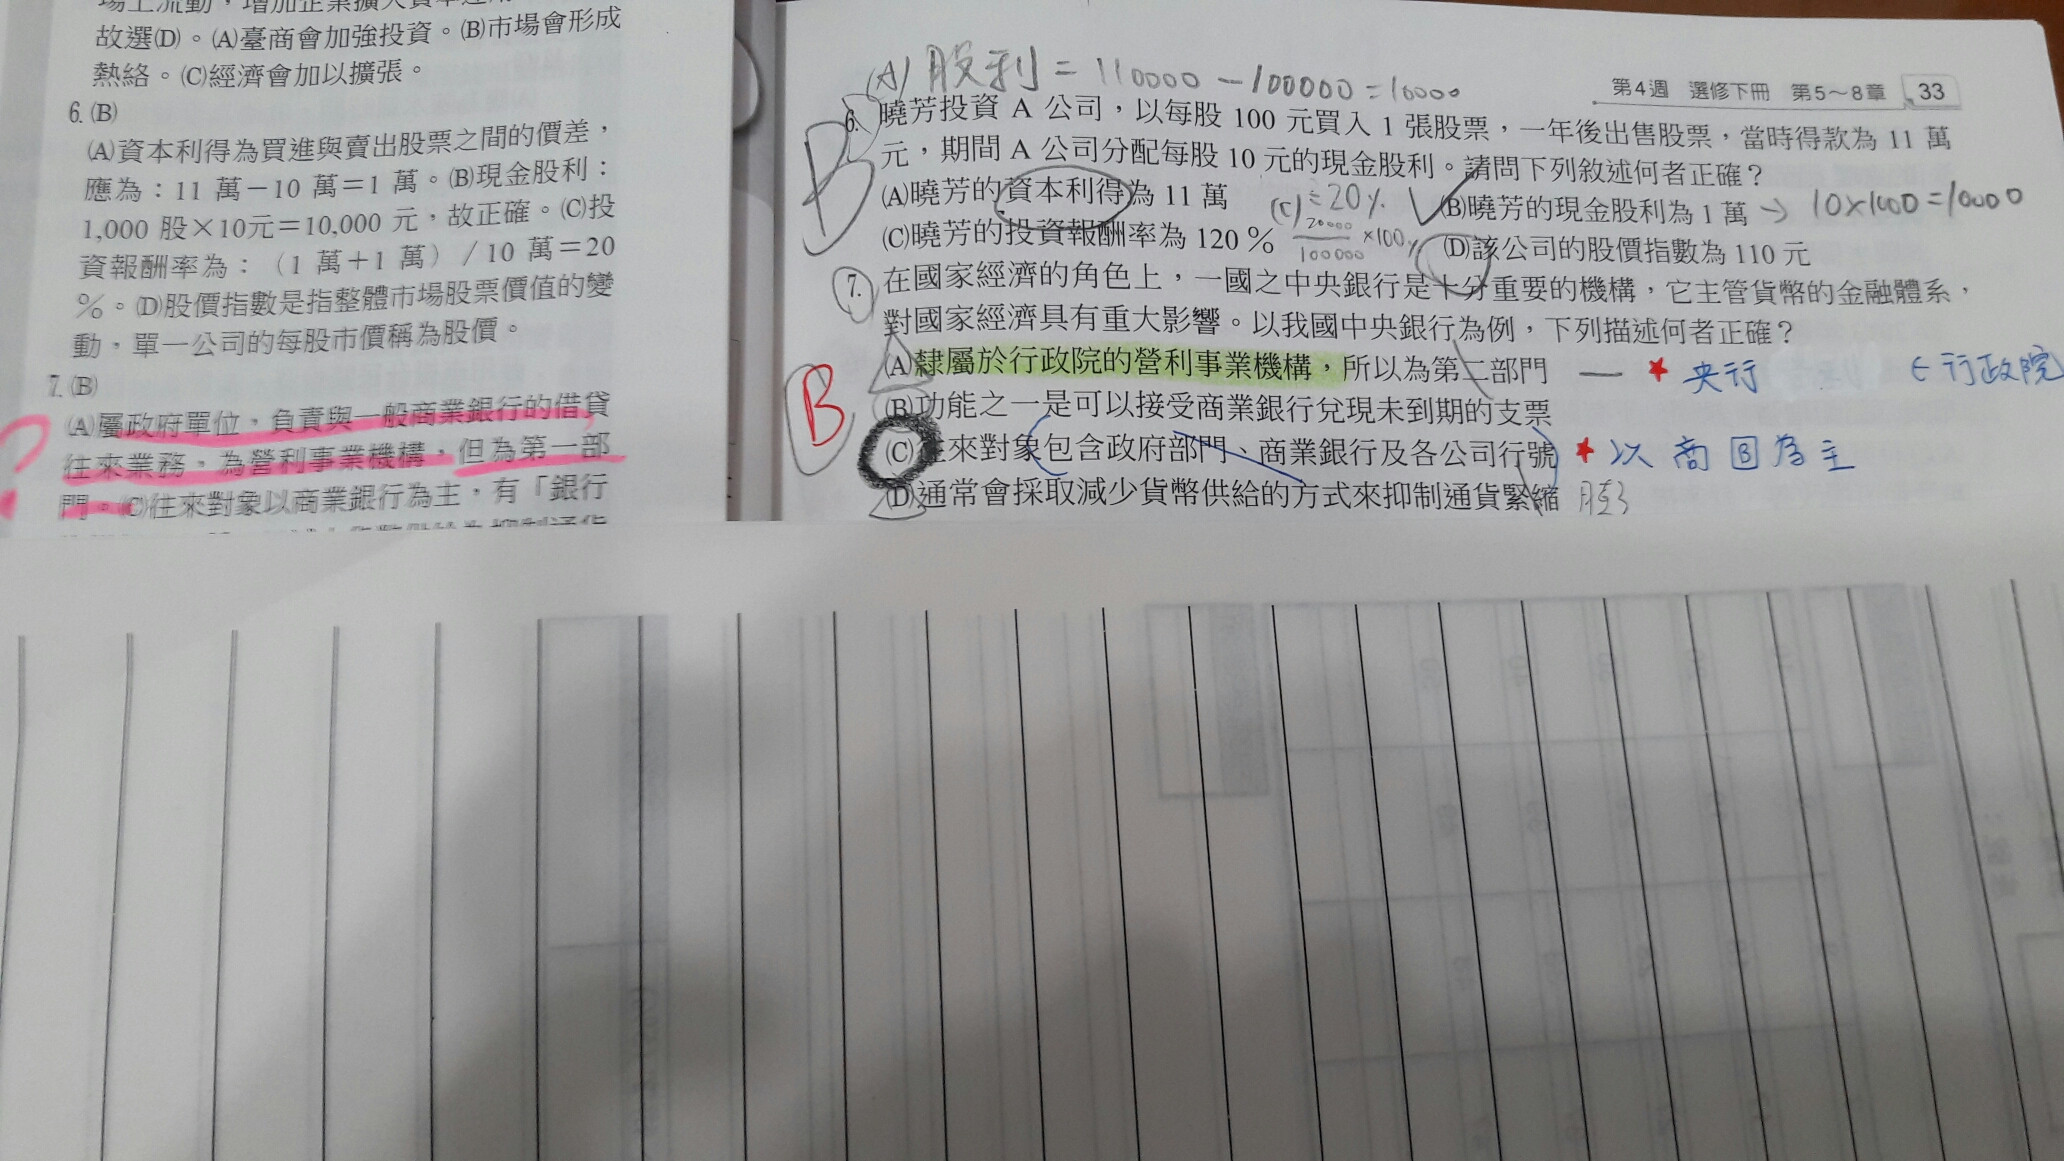 故選(D)。(A)臺商會加強投資。(B)市場會形成
熱絡。(C)經濟會加以擴張。
6. (B)
(A)資本利得為買進與賣出股票之間的價差，
應為：11 萬－10 萬＝1 萬。(B)現金股利：
1,000 股×10元＝10,000 元，故正確。(C)投
資報酬率為：（1 萬＋1 萬）/10 萬＝20
％。(D)股價指數是指整體市場股票價值的變
動，單一公司的每股市價稱為股價。
7. (B)
(A)屬政府單位，負責與一般商業銀行的借貸
往來業務，為營利事業機構，但為第一部
門。(C)往來對象以商業銀行為主，有「銀行
?
(A) 股利 = 110000 - 100000 = 10000
第4週 選修下冊 第5～8章 33
6. 曉芳投資 A 公司，以每股 100 元買入 1 張股票，一年後出售股票，當時得款為 11 萬
元，期間 A 公司分配每股 10 元的現金股利。請問下列敘述何者正確？
(A)曉芳的資本利得為 11 萬 (B)曉芳的現金股利為 1 萬 → 10×1000=10000
(C)曉芳的投資報酬率為 120％ (D)該公司的股價指數為 110 元
(C) 20%
20000
100000 ×100%
B
7. 在國家經濟的角色上，一國之中央銀行是十分重要的機構，它主管貨幣的金融體系，
對國家經濟具有重大影響。以我國中央銀行為例，下列描述何者正確？
(A)隸屬於行政院的營利事業機構，所以為第二部門 — ★ 央行 ∈行政院
(B)功能之一是可以接受商業銀行兌現未到期的支票
(C)往來對象包含政府部門、商業銀行及各公司行號 ★ 以商回為主
(D)通常會採取減少貨幣供給的方式來抑制通貨緊縮
B